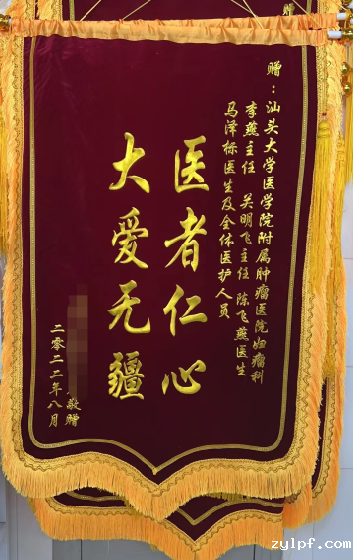 赠：汕头大学医学院附属肿瘤医院妇瘤科
李燕主任 关明飞主任 陈飞燕医生
马泽标医生及全体医护人员
医者仁心
大爱无疆
敬赠
二零二二年八月
zylpf.com